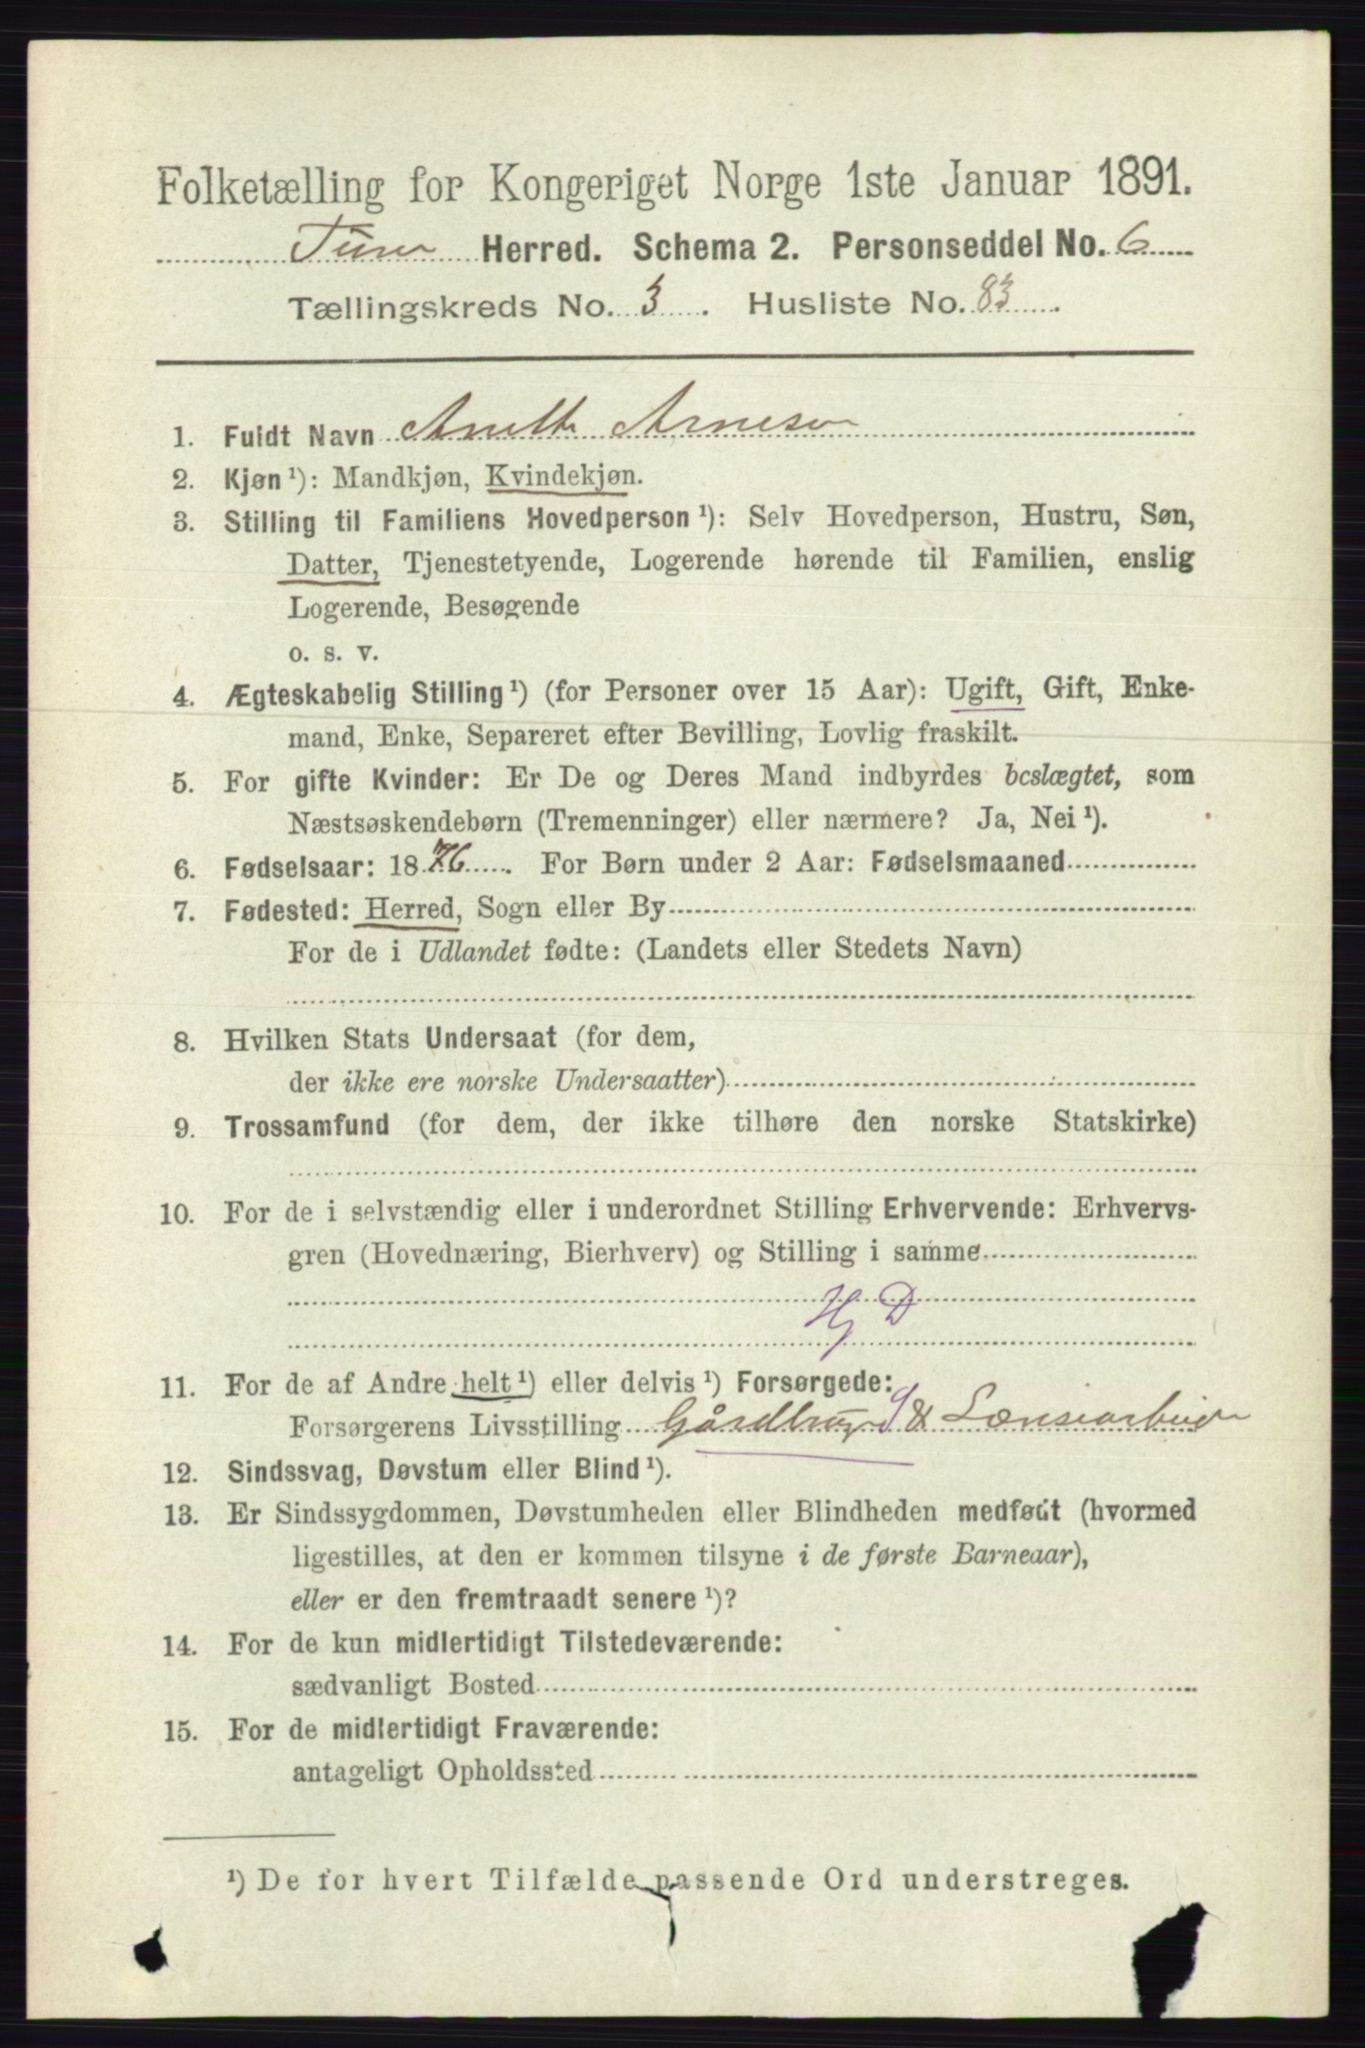 Folketælling for Kongeriget Norge 1ste Januar 1891.
Tune Herred. Schema 2. Personseddel No. 6
Tællingskreds No. 3. Husliste No. 83.
1. Fuldt Navn Arnesen
2. Kjøn ¹): Mandkjøn, Kvindekjøn.
3. Stilling til Familiens Hovedperson ¹): Selv Hovedperson, Hustru, Søn,
Datter, Tjenestetyende, Logerende hørende til Familien, enslig
Logerende, Besøgende
o. s. v.
4. Ægteskabelig Stilling ¹) (for Personer over 15 Aar): Ugift, Gift, Enke-
mand, Enke, Separeret efter Bevilling, Lovlig fraskilt.
5. For gifte Kvinder: Er De og Deres Mand indbyrdes beslægtet, som
Næstsøskendebørn (Tremenninger) eller nærmere? Ja, Nei ¹).
6. Fødselsaar: 1876. For Børn under 2 Aar: Fødselsmaaned
7. Fødested: Herred, Sogn eller By
For de i Udlandet fødte: (Landets eller Stedets Navn)
8. Hvilken Stats Undersaat (for dem,
der ikke ere norske Undersaatter)
9. Trossamfund (for dem, der ikke tilhøre den norske Statskirke)
10. For de i selvstændig eller i underordnet Stilling Erhvervende: Erhvervs-
gren (Hovednæring, Bierhverv) og Stilling i samme
Hj D
11. For de af Andre helt ¹) eller delvis ¹) Forsørgede:
Forsørgerens Livsstilling Gårdbrug S & Lænsearbeider
12. Sindssvag, Døvstum eller Blind ¹).
13. Er Sindssygdommen, Døvstumheden eller Blindheden medfødt (hvormed
ligestilles, at den er kommen tilsyne i de første Barneaar),
eller er den fremtraadt senere ¹)?
14. For de kun midlertidigt Tilstedeværende:
sædvanligt Bosted
15. For de midlertidigt Fraværende:
antageligt Opholdssted
¹) De for hvert Tilfælde passende Ord understreges.